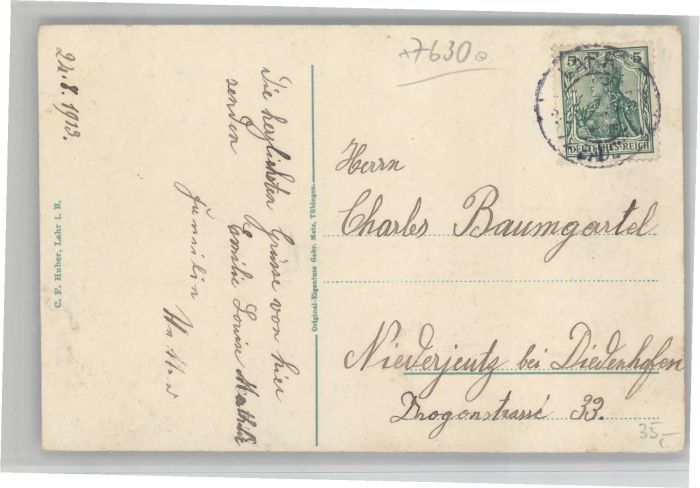 24.8.1913.
Die herzlichsten Grüsse von hier
senden Emilie Louise Mathilde
Familie
C. F. Huber, Lahr i. B.
Original-Eigentum Gebr. Metz, Tübingen.
7630
5 5
DEUTSCHES REICH
Herrn
Charles Baumgartel
Niederjeutz bei Diedenhofen
Drogonstrasse 33.
35,-